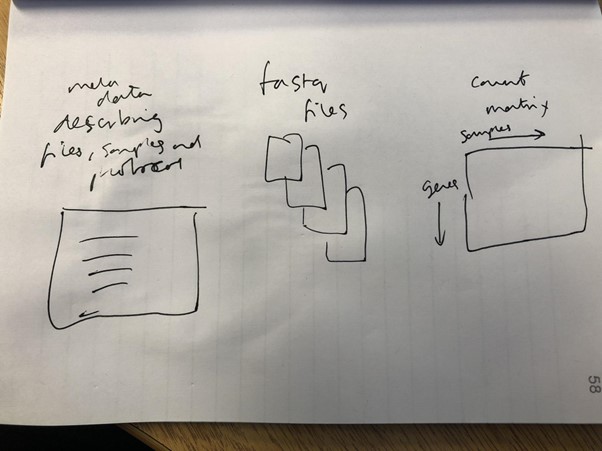 meta
data
describing
files, samples and
protocol
fastq
files
count
matrix
samples
genes
58